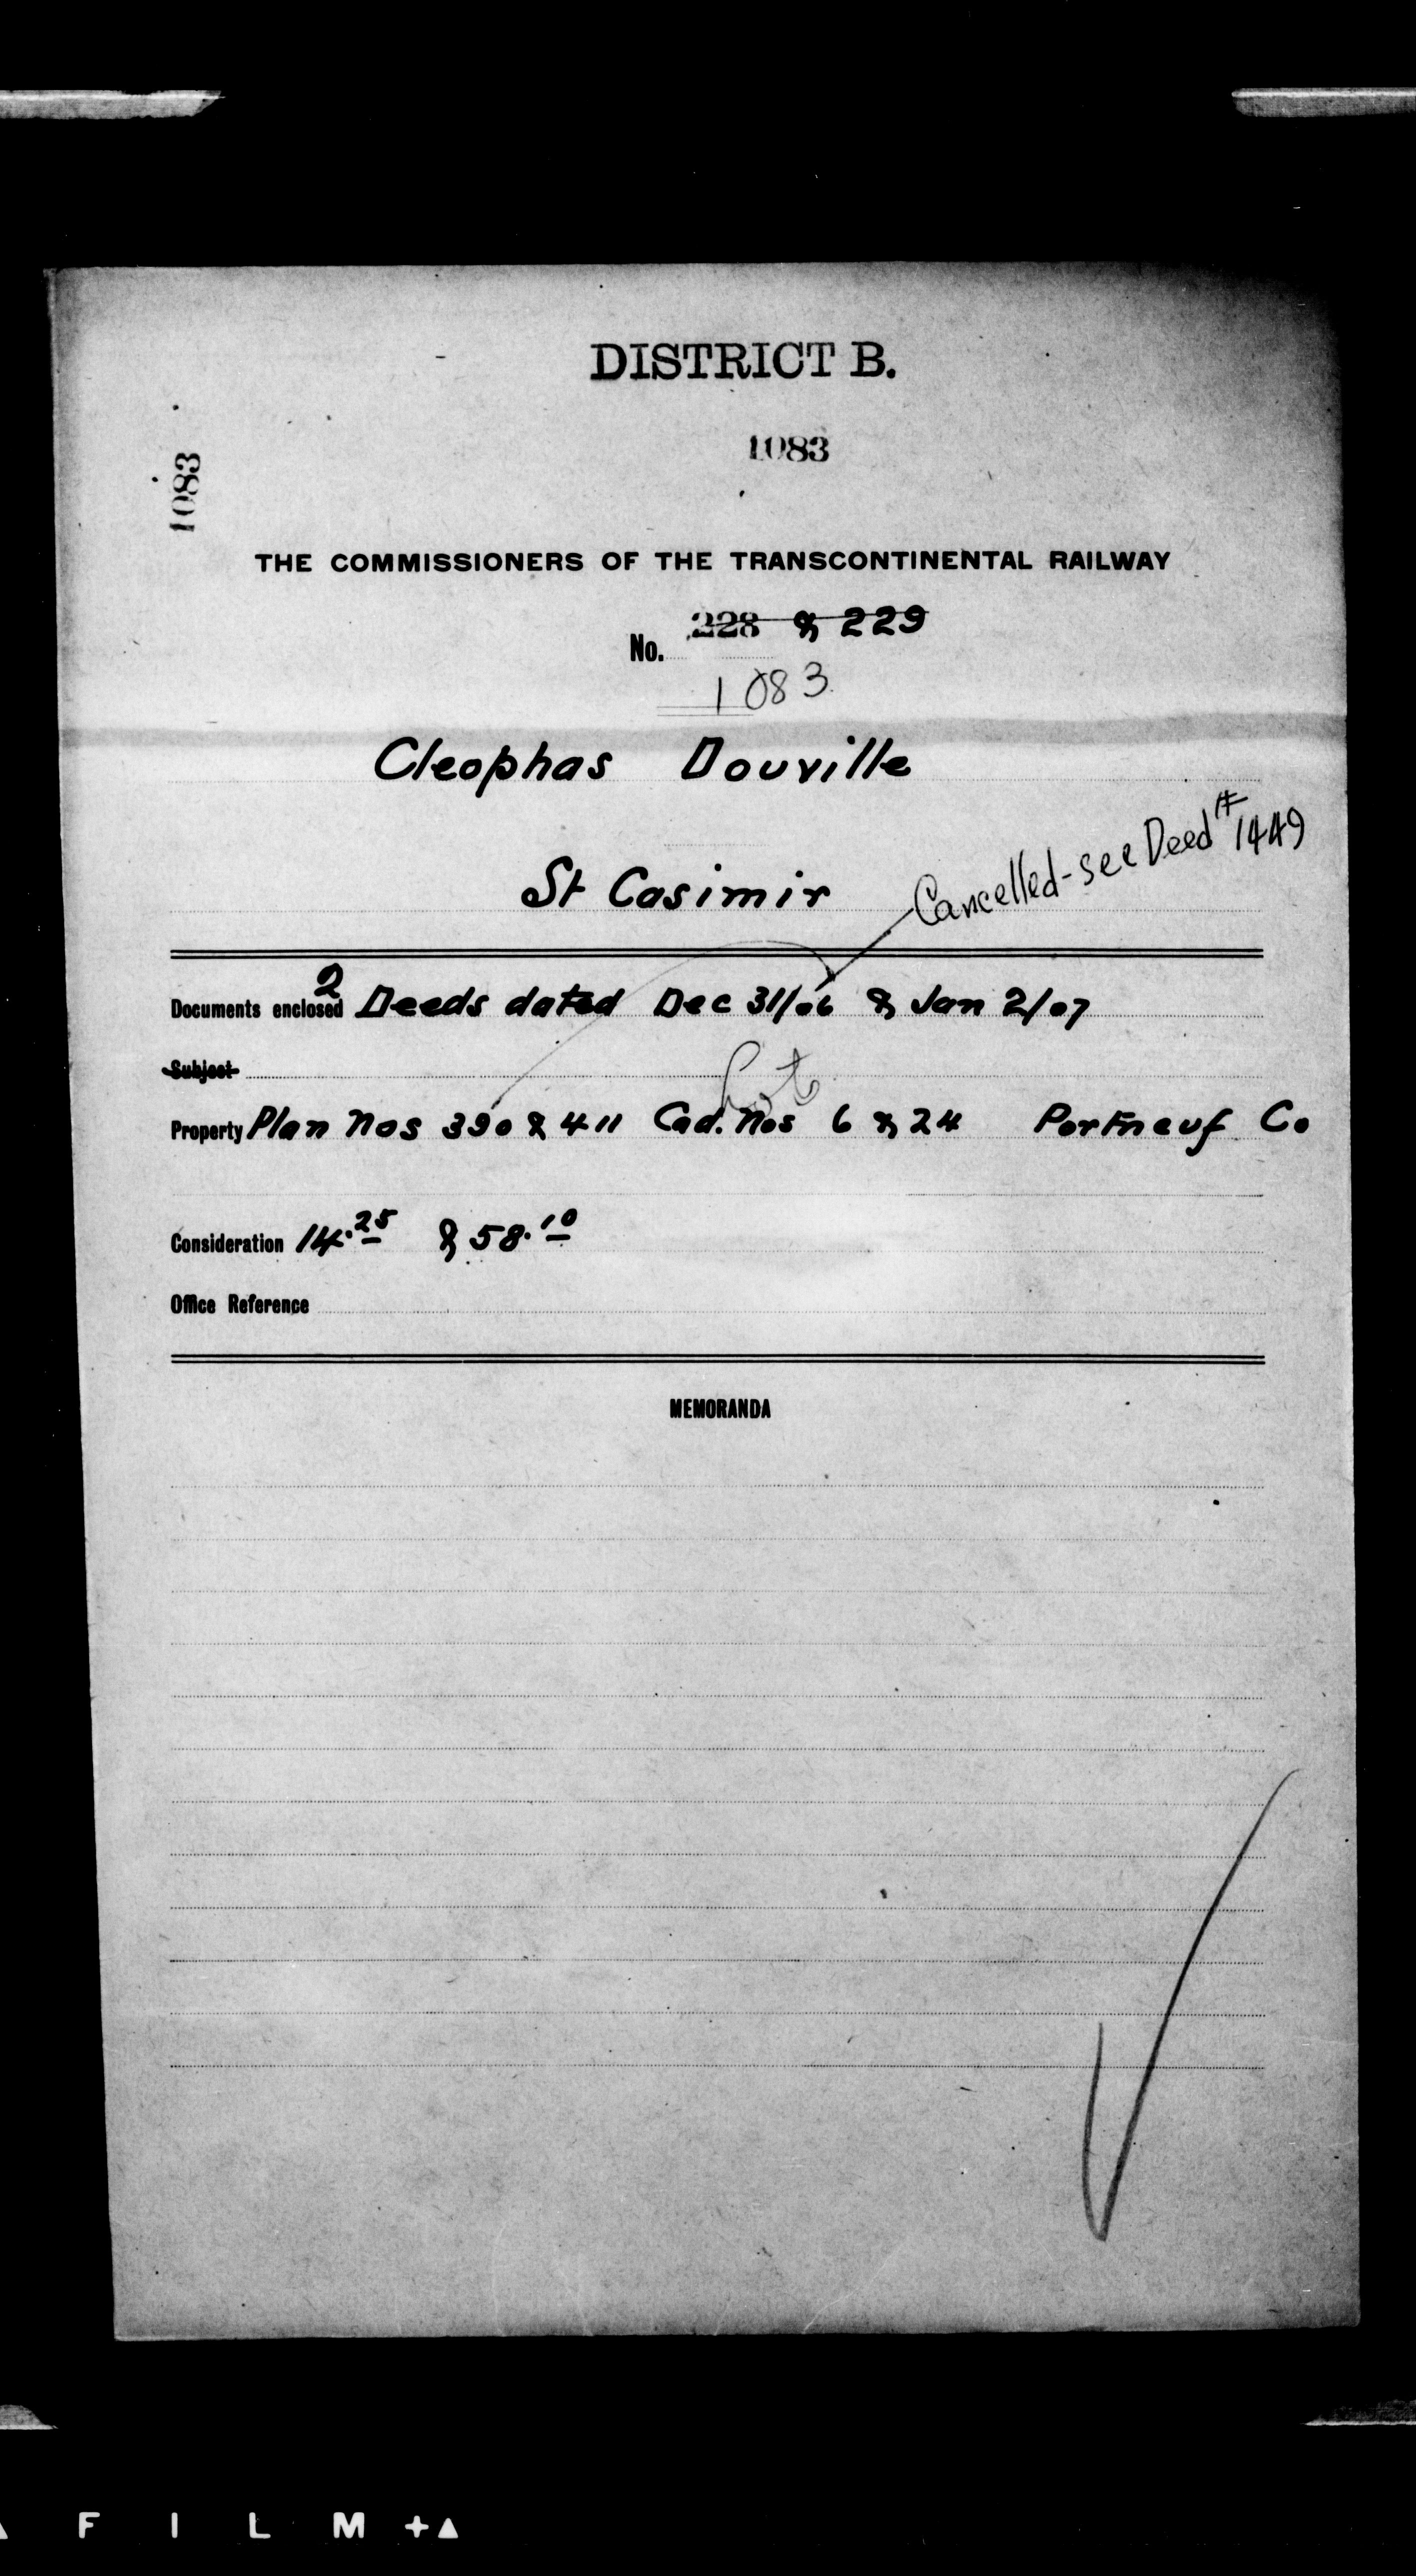 DISTRICT B.
1083
1083
THE COMMISSIONERS OF THE TRANSCONTINENTAL RAILWAY
No. 228 & 229
1083
Cleophas Douville
St Casimir
Cancelled - see Deed # 1449
Documents enclosed 2 Deeds dated Dec 31/06 & Jan 2/07
Subject
Lot
Property Plan Nos 390 & 411 Cad. Nos 6 & 24 Portneuf Co
Consideration 14.25 & 58.10
Office Reference
MEMORANDA
FILM